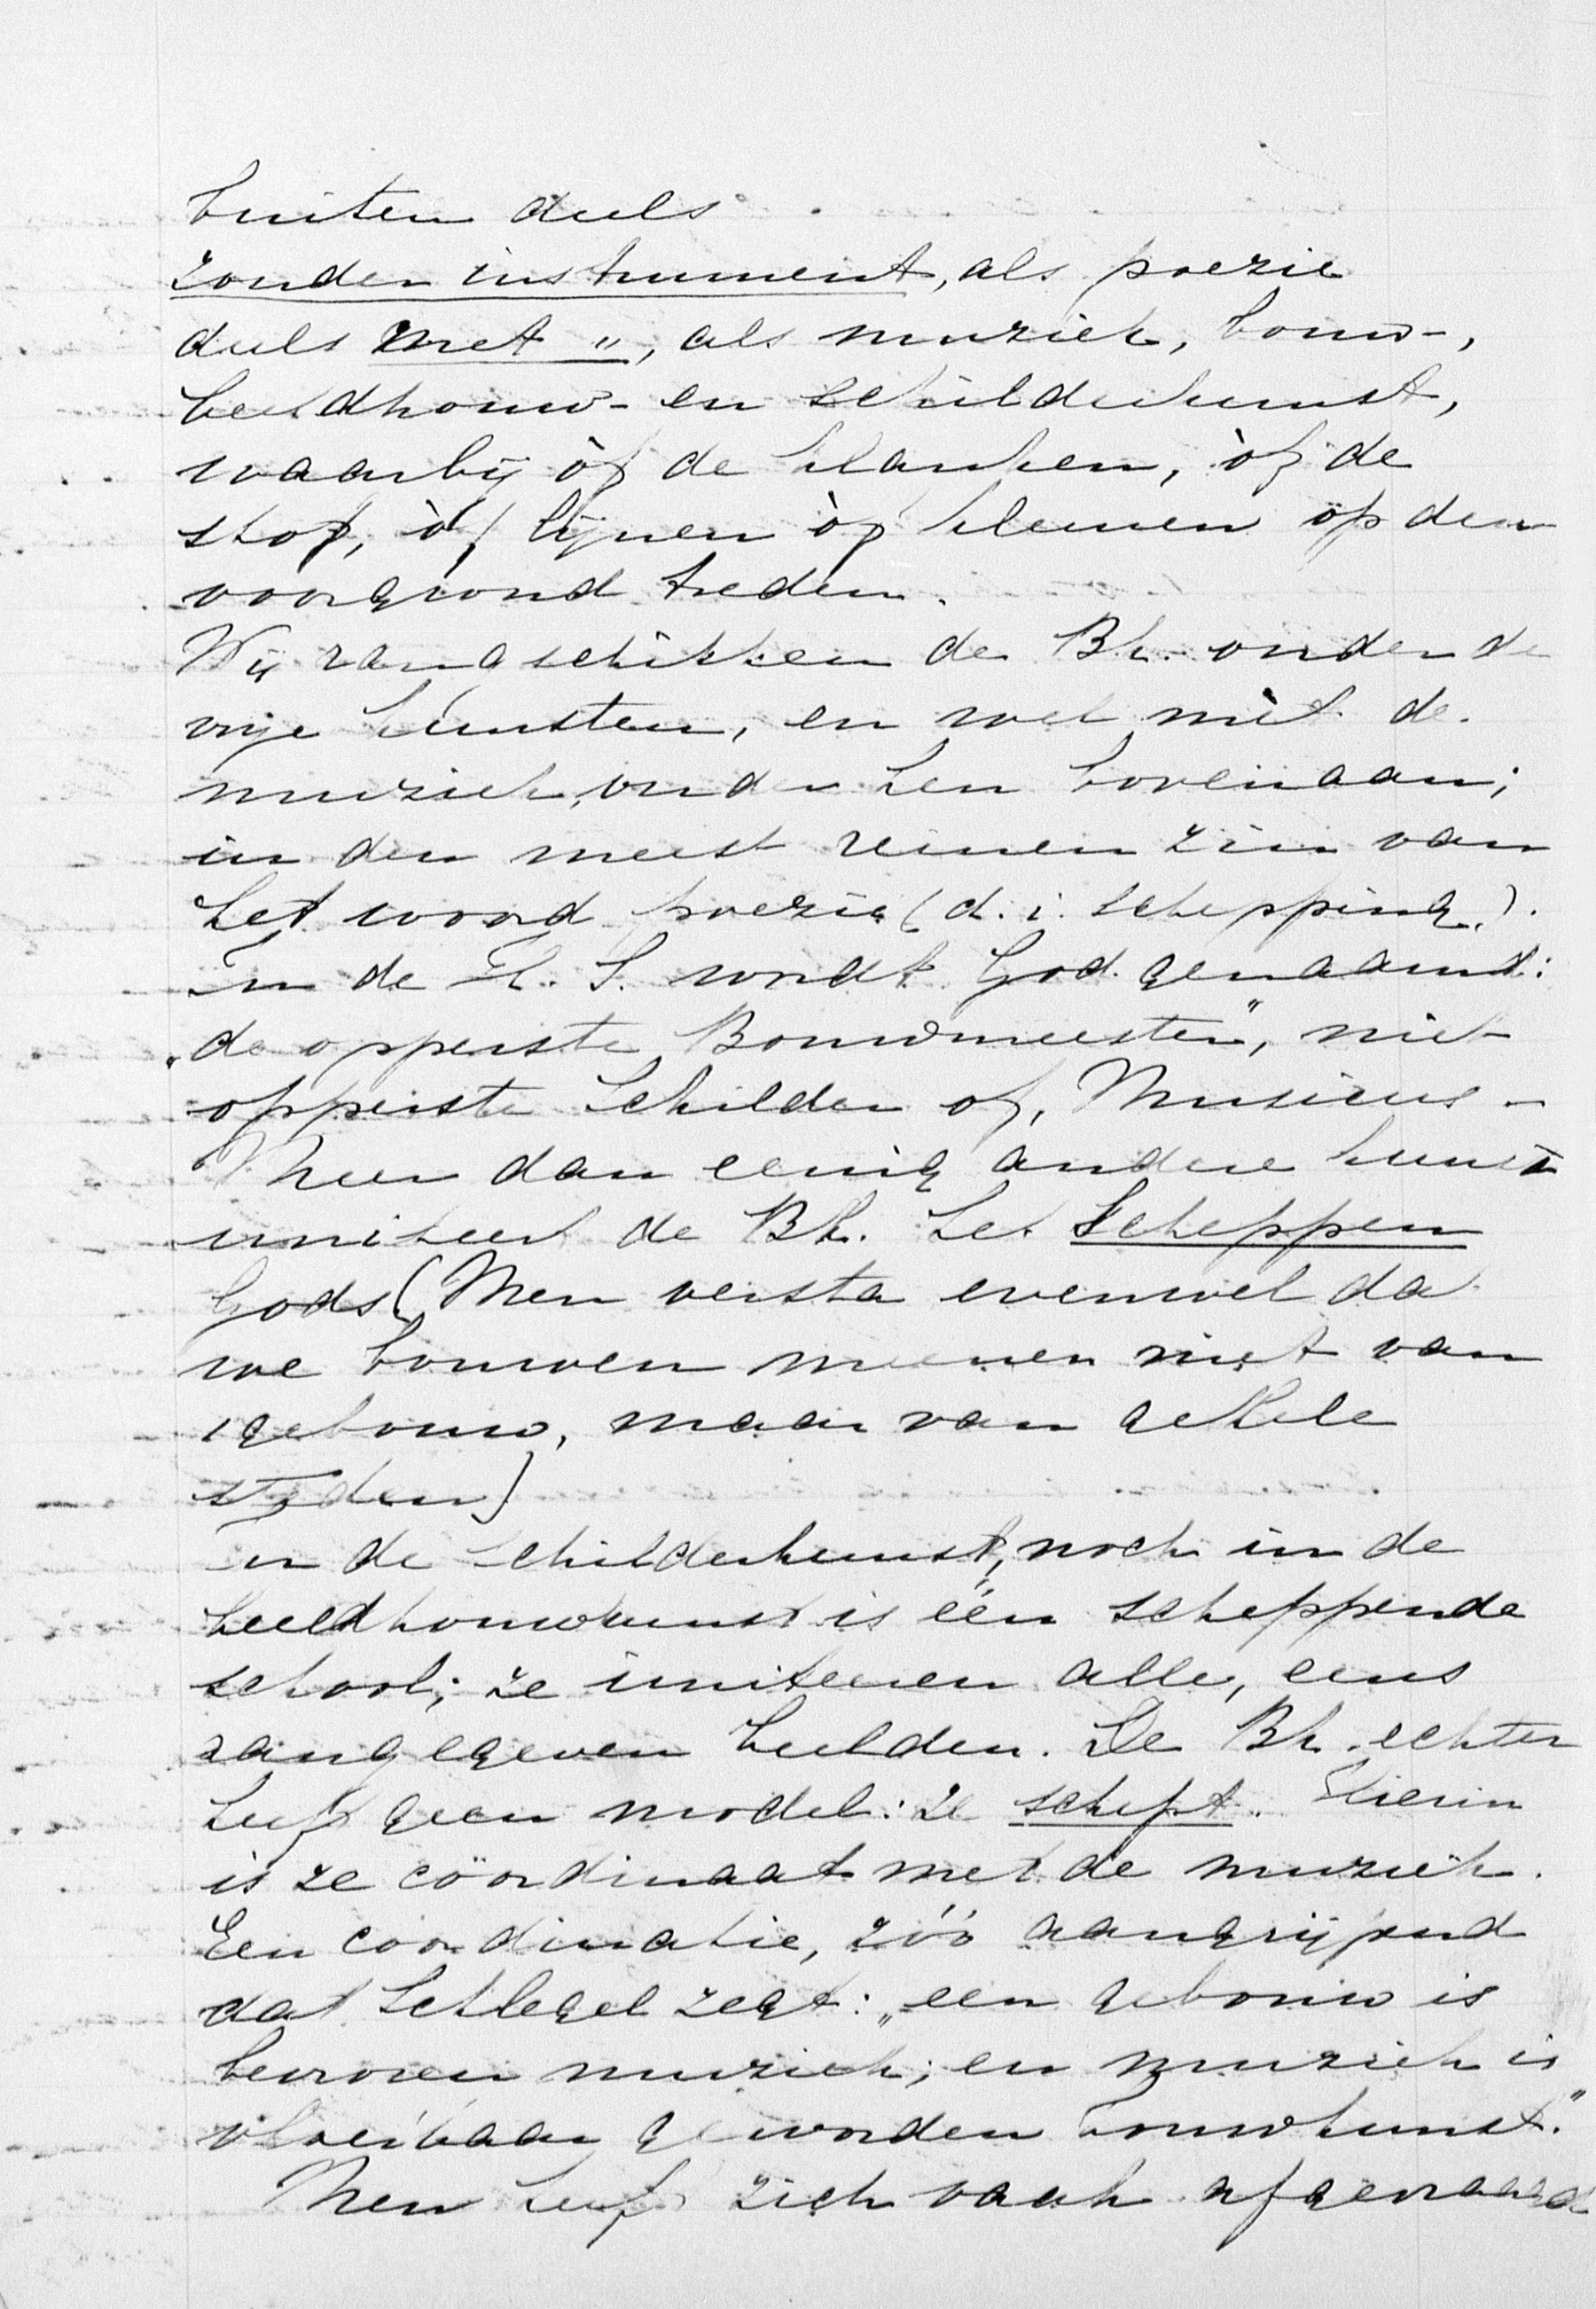 buiten deels
zonder instrument, als poezie
deels met ", als muziek, bouw-,
beeldhouw- en schilderkunst,
waarbij òf de klanken, òf de
stof, òf lijnen òf kleuren op den
voorgrond treden.
Wij rangschikken de Bk. onder de
vrije kunsten, en wel mèt de
muziek, onder hen bovenaan;
in den meest reinen zin van
het woord poezie (d. i. schepping).
In de H. S. wordt God genaamd:
„de opperste Bouwmeester", niet
opperste Schilder of, Musicus –
Meer dan eenig andere kunst
imiteert de Bk. het Scheppen
Gods (Men versta evenwel da
we bouwen meenen niet van
1 gebouw, maar van geheele
steden)
In de schilderkunst, noch in de
beeldhouwkunst is één scheppende
school; ze imiteeren alle, eens
aangegeven beelden. De Bk. echter
heeft geen model: ze schept. Hierin
is ze coördinaat met de muziek.
Een coordinatie, zóó aangrijpend
dat Schlegel zegt: „een gebouw is
bevroren muziek; en muziek is
vloeibaar geworden bouwkunst."
Men heeft zich vaak afgevraagd